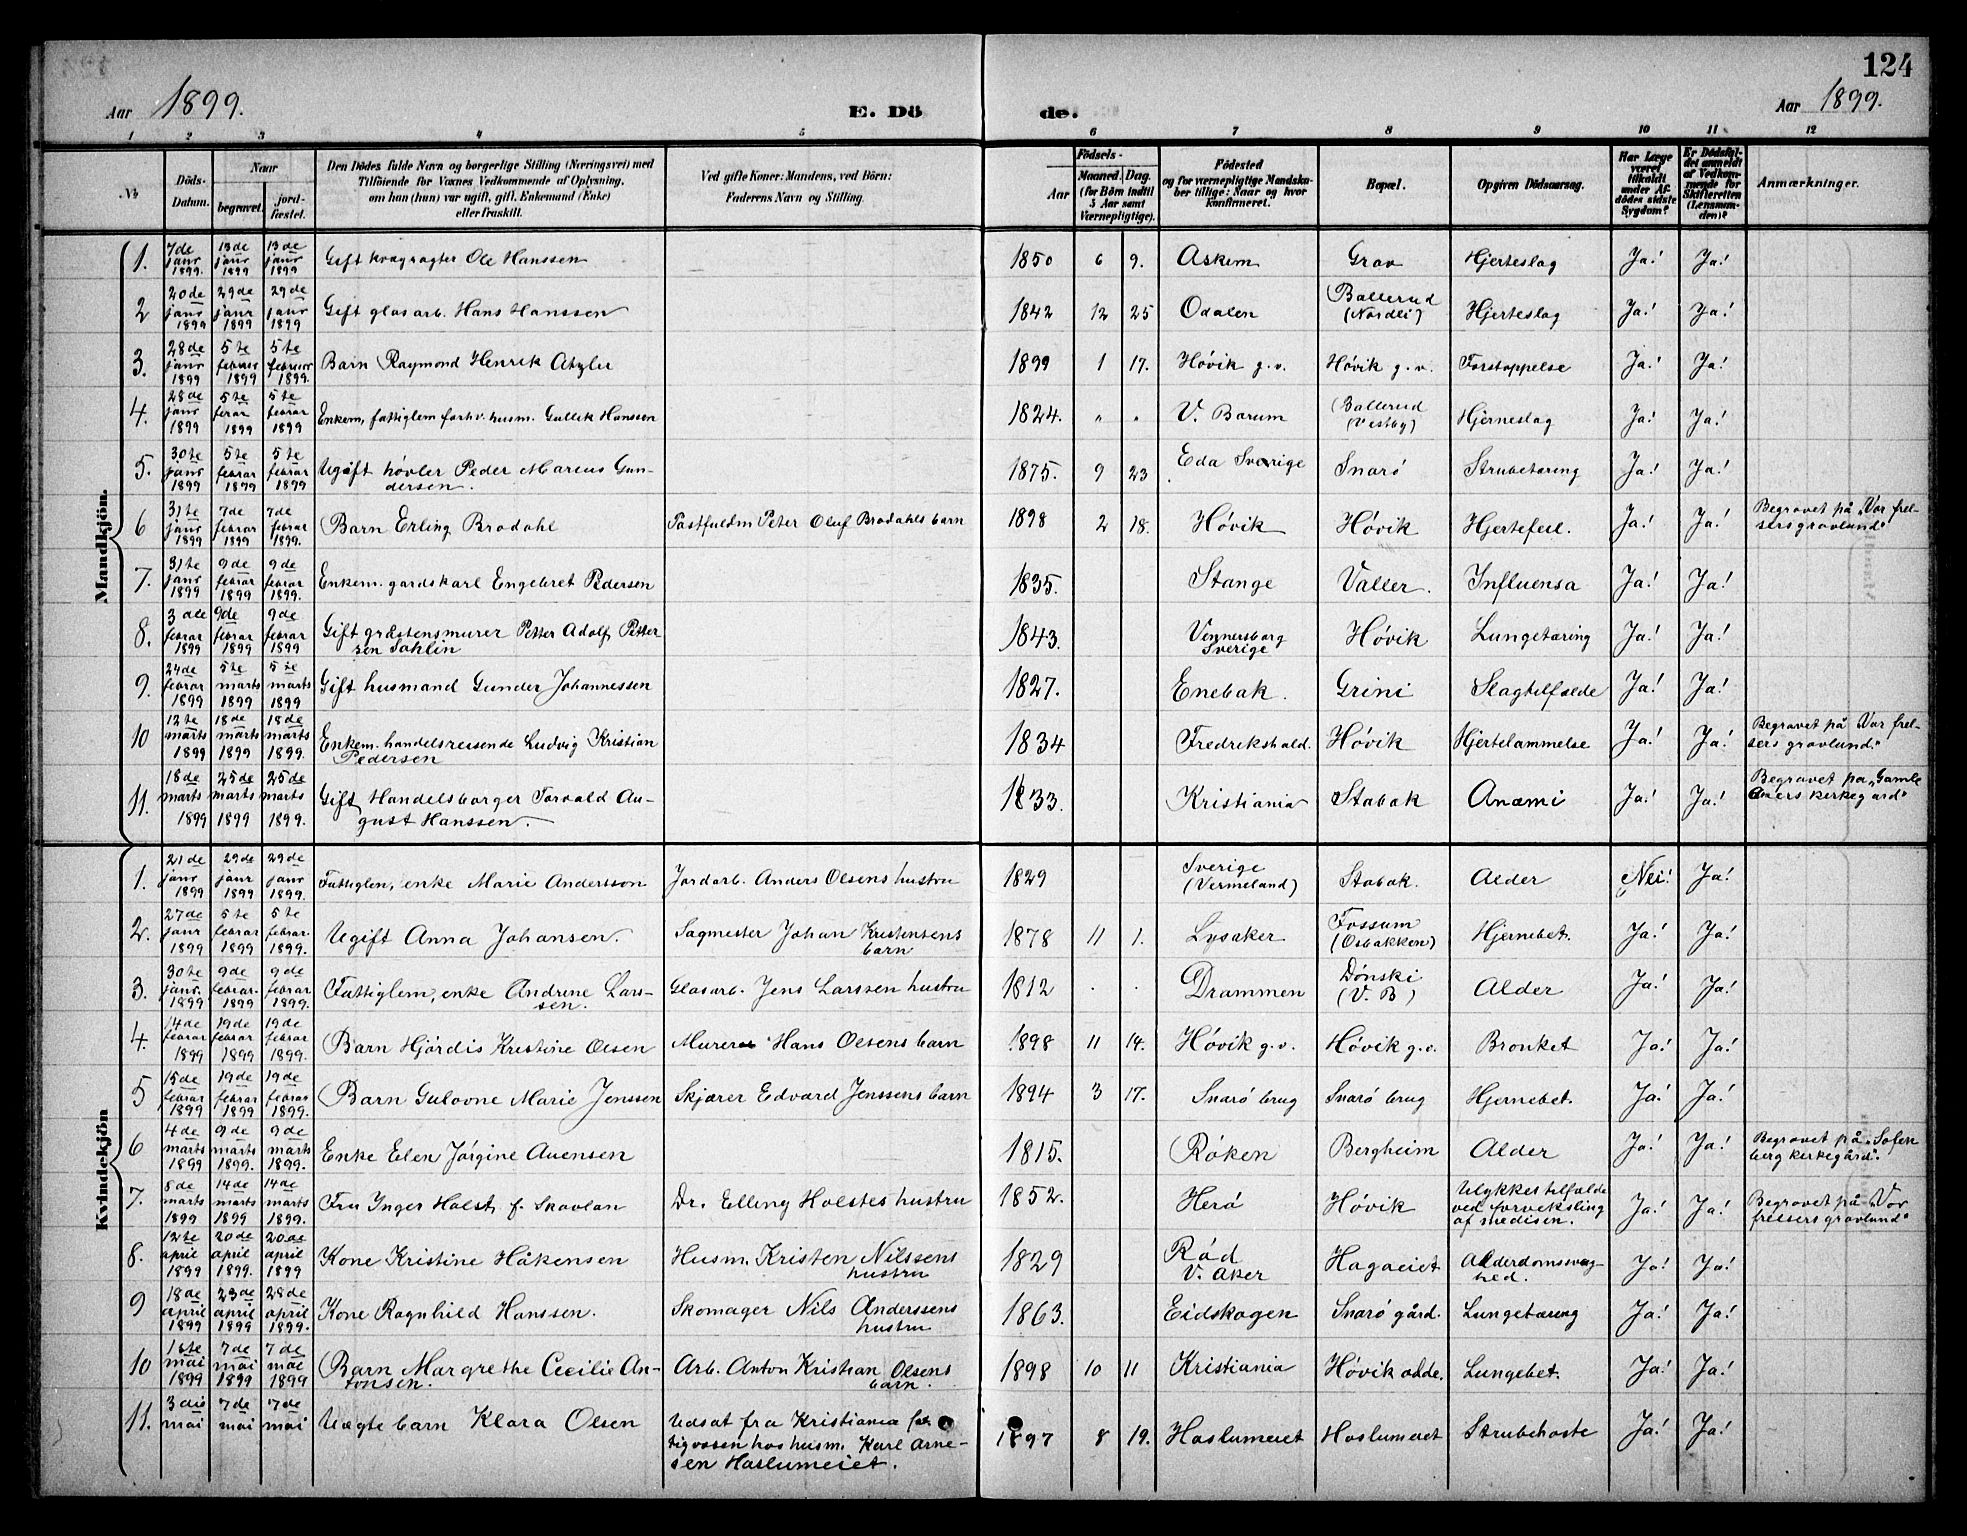 124
Aar 1899.
E. Döde.
Aar 1899.
1 2 3 4 5 6 7 8 9 10 11 12
No
Döds-Datum.
Naar
begravet.
jordfæstet.
Den Dödes fulde Navn og borgerlige Stilling (Næringsvei) med
Tilföiende for Voxnes Vedkommende af Oplysning,
om han (hun) var ugift, gift, Enkemand (Enke)
eller fraskilt.
Ved gifte Koner: Mandens, ved Börn:
Faderens Navn og Stilling.
Födsels-
Aar
Maaned. Dag.
(for Börn indtil
5 Aar samt
Værnepligtige).
Födested
og for værnepligtige Mandskaber tillige: Naar og hvor
konfirmeret.
Bopæl.
Opgiven Dödsaarsag.
Har Læge
været
tilkaldt
under Afdödes sidste
Sygdom?
Er Dödsfaldet anmeldt
af Vedkommende for
Skifteretten
(Lensmanden)?
Anmærkninger.
Mandkjön.
1. 7de janr 1899. 13de janr 1899 13de janr 1899 Gift kvægrøgter Ole Hanssen 1850 6 9. Askem Grav Hjerteslag Ja! Ja!
2 20de janr 1899 29de janr 1899 29de janr 1899 Gift glasarb. Hans Hanssen 1842 12 25 Odalen Ballerud (Nordli) Hjerteslag Ja! Ja!
3. 28de janr 1899 5te februar 1899 5te februar 1899. Barn Raymond Henrik Atzler 1899 1 17. Høvik g.v. Høvik g.v. Forstoppelse Ja! Ja!
4. 28de janr 1899 5te febrar 1899 5te febrar 1899 Enkem, fattiglem forhv. husm. Gullik Hanssen 1824. " " V. Barum Ballerud (Vestby) Hjerneslag Ja! Ja!
5. 30te janr 1899 5te febrar 1899 5te febrar 1899 Ugift høvler Peder Marcus Gundersen. 1875. 9 23 Eda Sverige Snarø Strubetæring Ja! Ja!
6 31te janr 1899 7de febrar 1899 7de febrar 1899. Barn Erling Brodahl Postfuldm Peter Oluf Brodahls barn 1898 2 18. Høvik Høvik Hjertefeil. Ja! Ja! Begravet på "Vor frelsers gravlund"
7. 31te janr 1899 9de febrar 1899 9de febrar 1899 Enkem. gardskarl Engebret Pedersen 1835. Stange Valler. Influensa Ja! Ja!
8. 3die febrar 1899 9de febrar 1899 9de febrar 1899 Gift gråstensmurer Petter Adolf Pettersen Sahlin 1843. Vennersborg Sverige Høvik Lungetæring Ja! Ja!
9. 24de febrar 1899 5te marts 1899 5te marts 1899 Gift husmand Gunder Johannessen 1827. Enebak. Grini Slagtilfælde Ja! Ja!
10 12te marts 1899 18de marts 1899 18de marts 1899. Enkem. handelsreisende Ludvig Kristian Pedersen 1834 Fredrikshald. Høvik Hjertelammelse Ja! Ja! Begravet på "Vor frelsers gravlund."
11. 18de marts 1899 25de marts 1899 25de marts 1899. Gift Handelsborger Torvald August Hanssen. 1833. Kristiania Stabæk Anæmi Ja! Ja! Begravet pa "Gamle Akers kirkegard"
Kvindekjön
1. 21de janr 1899 29de janr 1899 29de janr 1899. Fattiglem, enke Marie Andersson Jordarb. Anders Olsens hustru 1829 Sverige (Vermeland) Stabæk. Alder Nei! Ja!
2. 27de janr 1899 5te febrar 1899 5te febrar. 1899. Ugift Anna Johansen. Sagmester Johan Kristensens barn 1878 11 1. Lysaker Fossum (Osbakken) Hjernebet. Ja! Ja!
3. 30te janr. 1899 9de febrar. 1899 9de febrar 1899. Fattiglem, enke Andrine Larssen. Glasarb. Jens Larssen hustru 1812 . . Drammen Dønski (V. B) Alder Ja! Ja!
4. 14de febrar 1899 19de febrar 1899 19de febrar 1899. Barn Hjørdis Kristine Olsen Murer Hans Olsens barn 1898 11 14. Høvik g.v. Høvik g.v. Bronket Ja! Ja!
5 15de febrar 1899 19de febrar 1899 19de febrar 1899. Barn Gulovne Marie Jenssen Skjærer Edvard Jenssens barn 1894 3 17. Snarø brug Snarø brug Hjernebet. Ja! Ja!
6 4de marts 1899 9de marts 1899. 9de marts 1899. Enke Elen Jørgine Auensen 1815. Røken Bergheim Alder Ja! Ja! Begravet på "Sofienberg kirkegård".
7. 8de marts 1899 14de marts 1899 14de marts 1899. Fru Inger Holst f. Skavlan Dr. Elling Holstes hustru 1852. Herø Høvik Ulykkestilfælde ved forveksling af medisen. Ja! Ja! Begravet på "Vor frelsers gravlund"
8. 12te april 1899 20de april 1899. 20de april 1899 Kone Kristine Håkensen Husm. Kristen Nilssens hustru 1829 Rød V. Aker Hagaeiet Alderdomssvaghed. Ja! Ja!
9 18de april 1899 23de april 1899 28de april 1899. Kone Ragnhild Hanssen. Skomager Nils Anderssens hustru 1863. Eidskogen Snarø gård. Lungetæring Ja! Ja!
10 1ste mai 1899 7de mai 1899 7de mai 1899 Barn Margrethe Cecilie Antonsen. Arb. Anton Kristian Olsens barn. 1898 10 11 Kristiania Høvik odde. Lungebet. Ja! Ja!
11. 3die mai 7de mai 7de mai Uægte barn Klara Olsen Udsat fra Kristiania fattigvæsen hos husm. Karl Arnesen Haslumeiet. 1897 8 19. Haslumeiet Haslumeiet Strubehoste Ja! Ja!